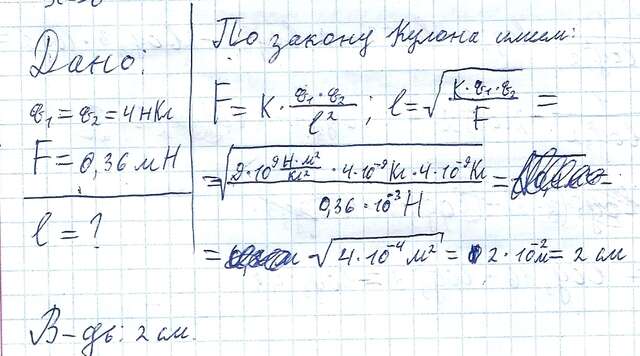 Дано:
q₁ = q₂ = 4 нКл
F = 0,36 мН
l = ?
По закону Кулона имеем:
F = K · q₁ · q₂ / l² ; l = √(K · q₁ · q₂ / F) =
= √(9 · 10⁹ Н · м² / Кл² · 4 · 10⁻⁹ Кл · 4 · 10⁻⁹ Кл / 0,36 · 10⁻³ Н) =
= √(4 · 10⁻⁴ м²) = 2 · 10⁻² м = 2 см
В-дь: 2 см.